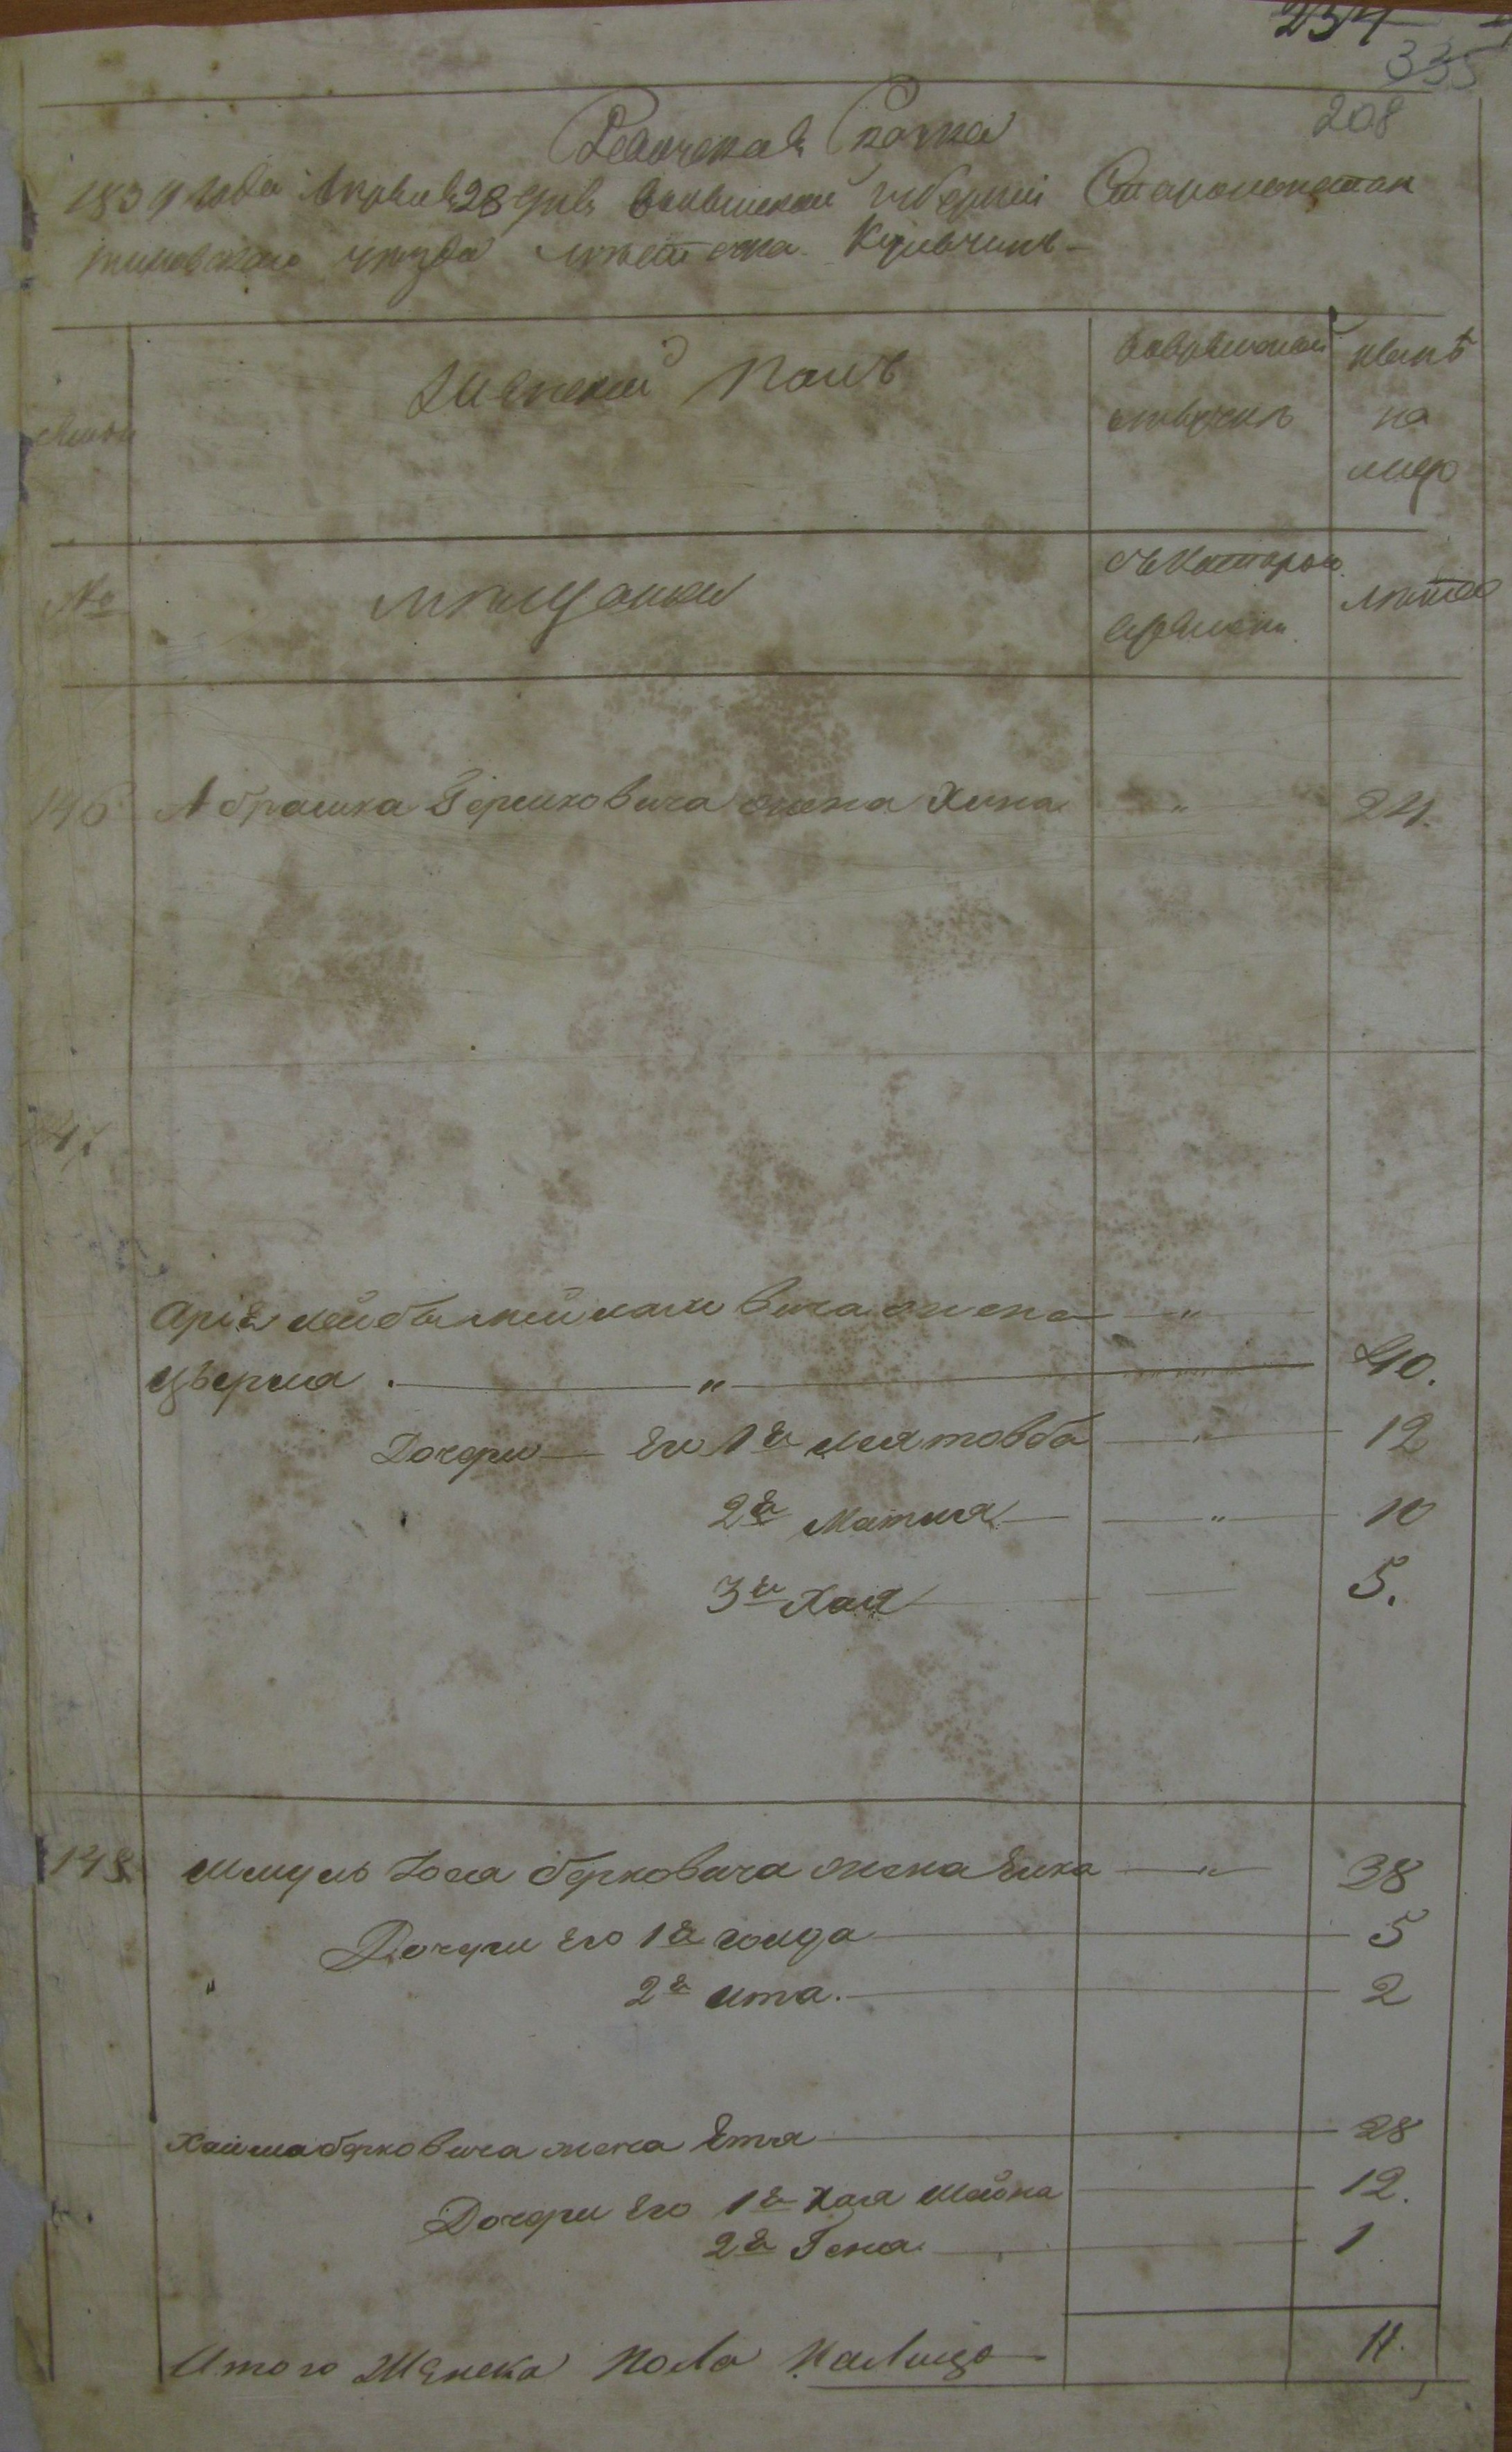 234
335
208
Ревизская Сказка
1834 года Апреля 28 дня Волынской Губернии Староконстан
тиновского уезда местечка Кульчин
Женский Полъ
Во временной
отлучкѣ
нынѣ
на
лицо
Семьи
№
мѣщанки
Съ котораго
времени
лѣта
146 Абрамка Гершковича жена Хина " 24.
147
Аріи Лейбы Шеймановича жена "
Цверля . " 40.
Дочери Его 1я Леятовба " 12
2я Матля " 10
3я Хая 5.
148 Шмуль Іося Берковича жена Бика " 38
Дочери Его 1я Голда 5
" 2я Ита. 2
Хаима Берковича жена Етя 28
Дочери Его 1я Хая Шейна 12.
2я Геня 1
Итого Женска Пола Налицо 11.